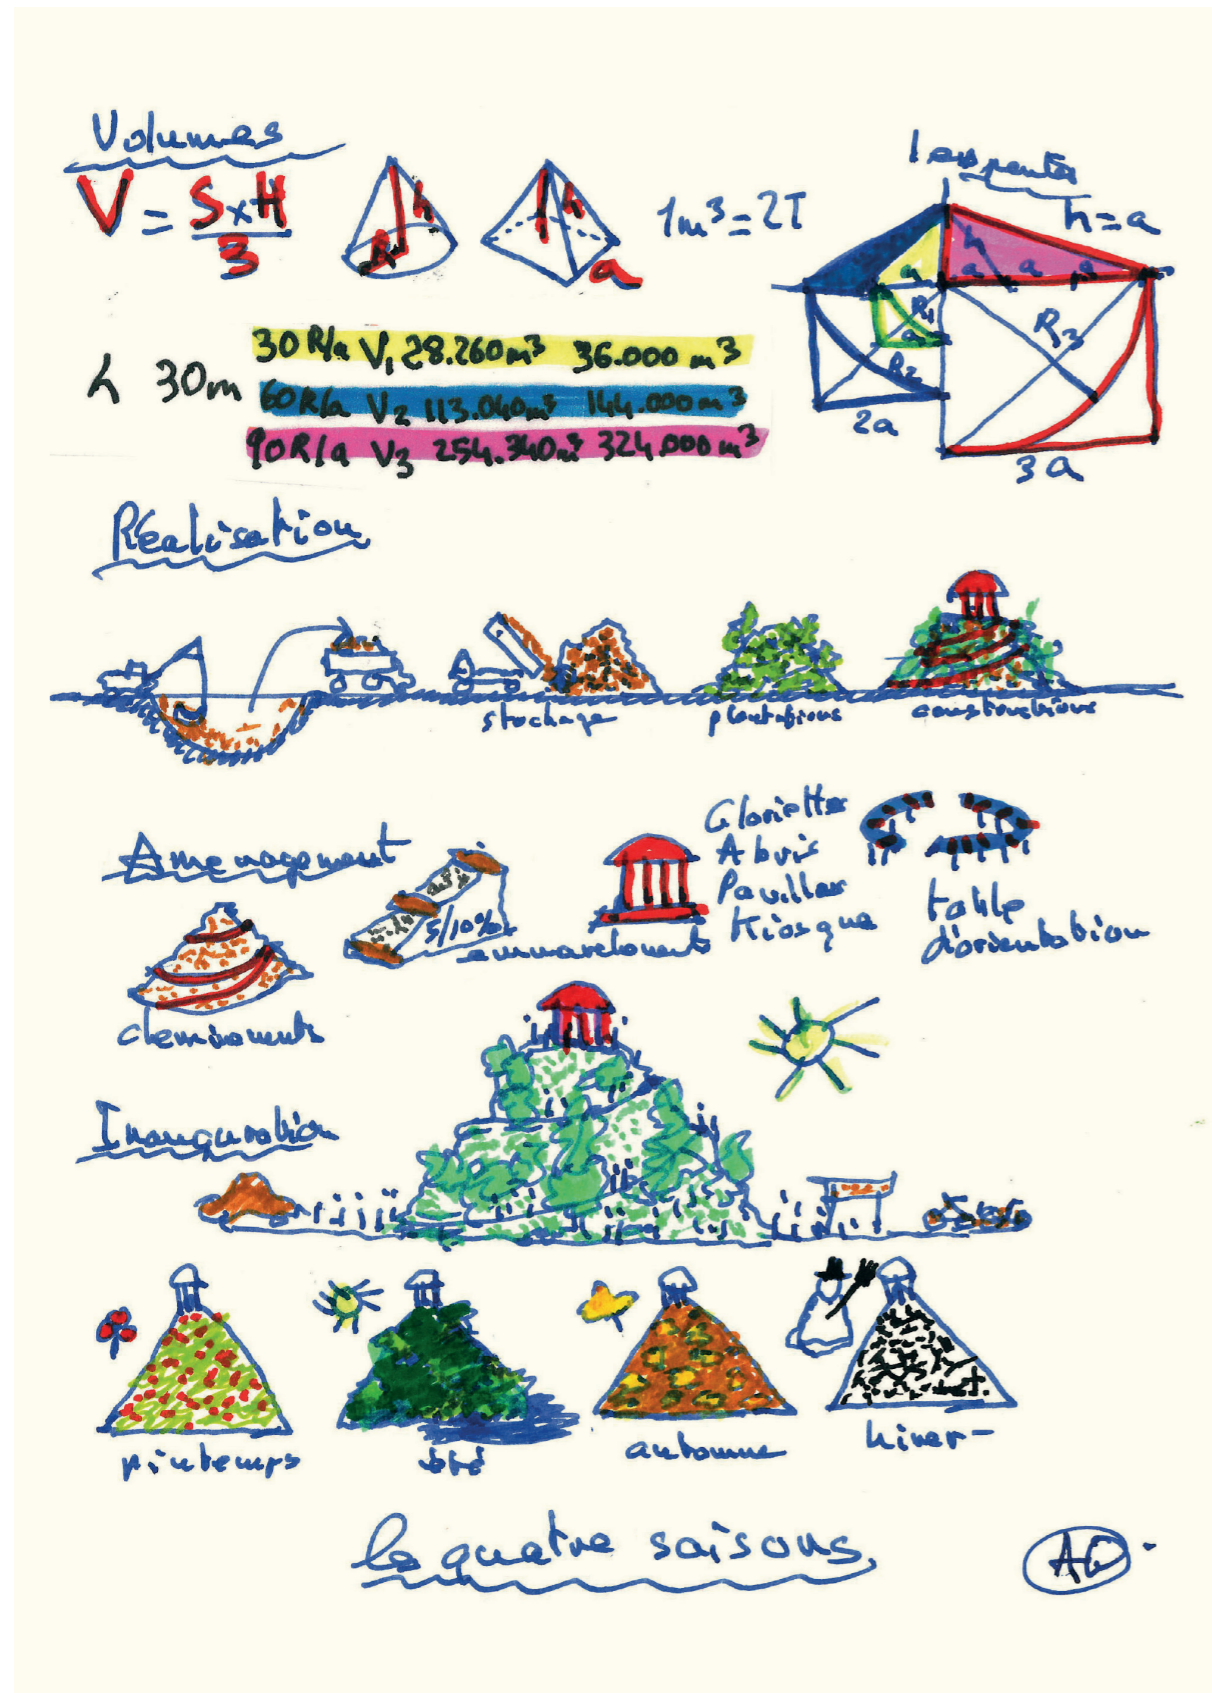 Volumes
V = S x H
3
h
R
h
a
1m³ = 2T
les pentes
h = a
h
a
a
a
a
R1
a
R2
R3
2a
3a
h 30m
30 R/a V1 28.260m³ 36.000 m³
60 R/a V2 113.040m³ 144.000 m³
90 R/a V3 254.340m³ 324.000 m³
Réalisation
stockage
plantations
constructions
Amenagement
5/10%
emmarchements
Gloriette
Abris
Pavillon
Kiosque
table
d'orientation
cheminements
Inauguration
printemps
été
automne
hiver-
les quatre saisons.